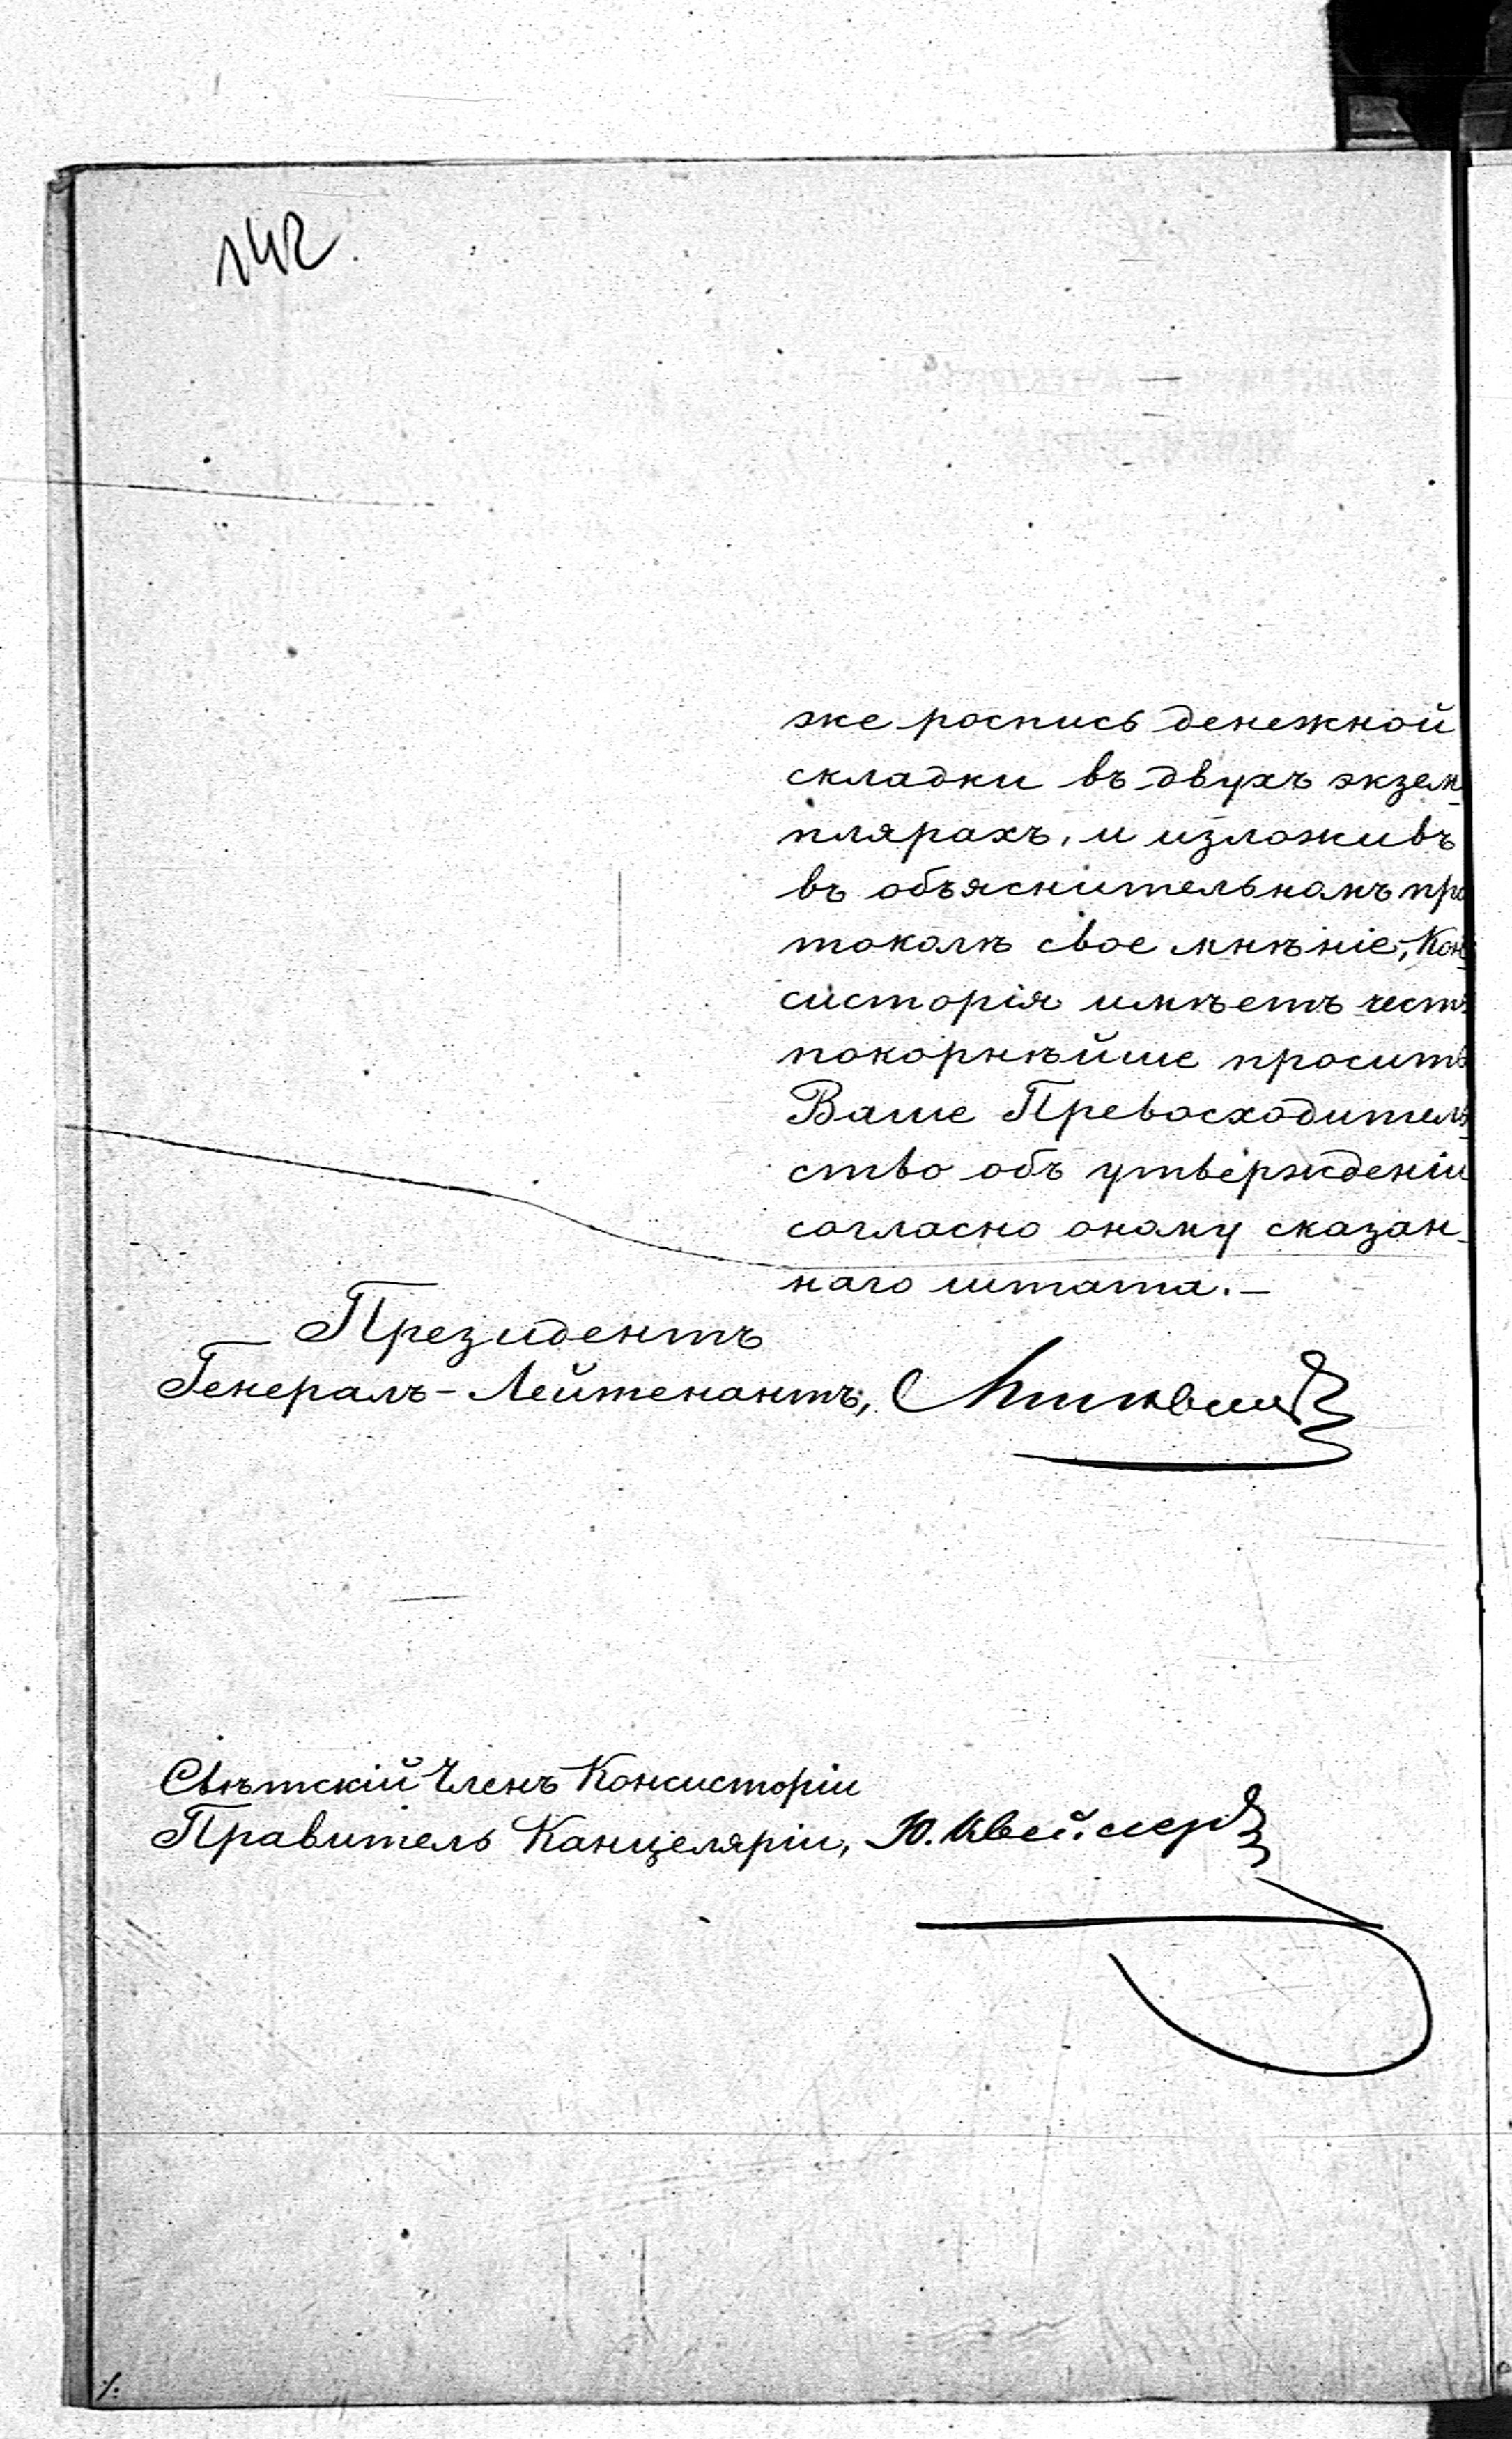 142.
же роспись денежной
складки въ двухъ экзем-
плярахъ, и изложивъ
въ объяснительномъ про
токолѣ свое мнѣніе, Кон-
систорія имѣетъ честь
покорнѣйше просить
Ваше Превосходитель-
ство объ утвержденіи
согласно оному сказан-
наго штата.-
Президентъ
Генералъ-Лейтенантъ,
Свѣтскій Членъ Консисторіи
Правитель Канцеляріи, Ю.